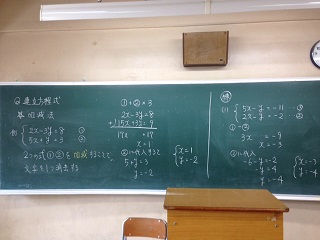 ◎連立方程式
※加減法
例) { 2x-3y=8 ①
5x+y=3 ②
2つの式①②を加減することで
文字を1つ消去する
①+②×3
2x-3y=8
+) 15x+3y=9
17x =17
x=1
②に代入すると
5+y=3
y=-2
{ x=1
y=-2
(1) { 5x-y=-11 ①
2x-y=-2 ②
①-②
3x =-9
x=-3
②に代入
-6-y=-2
-y=4
y=-4
{ x=-3
y=-4